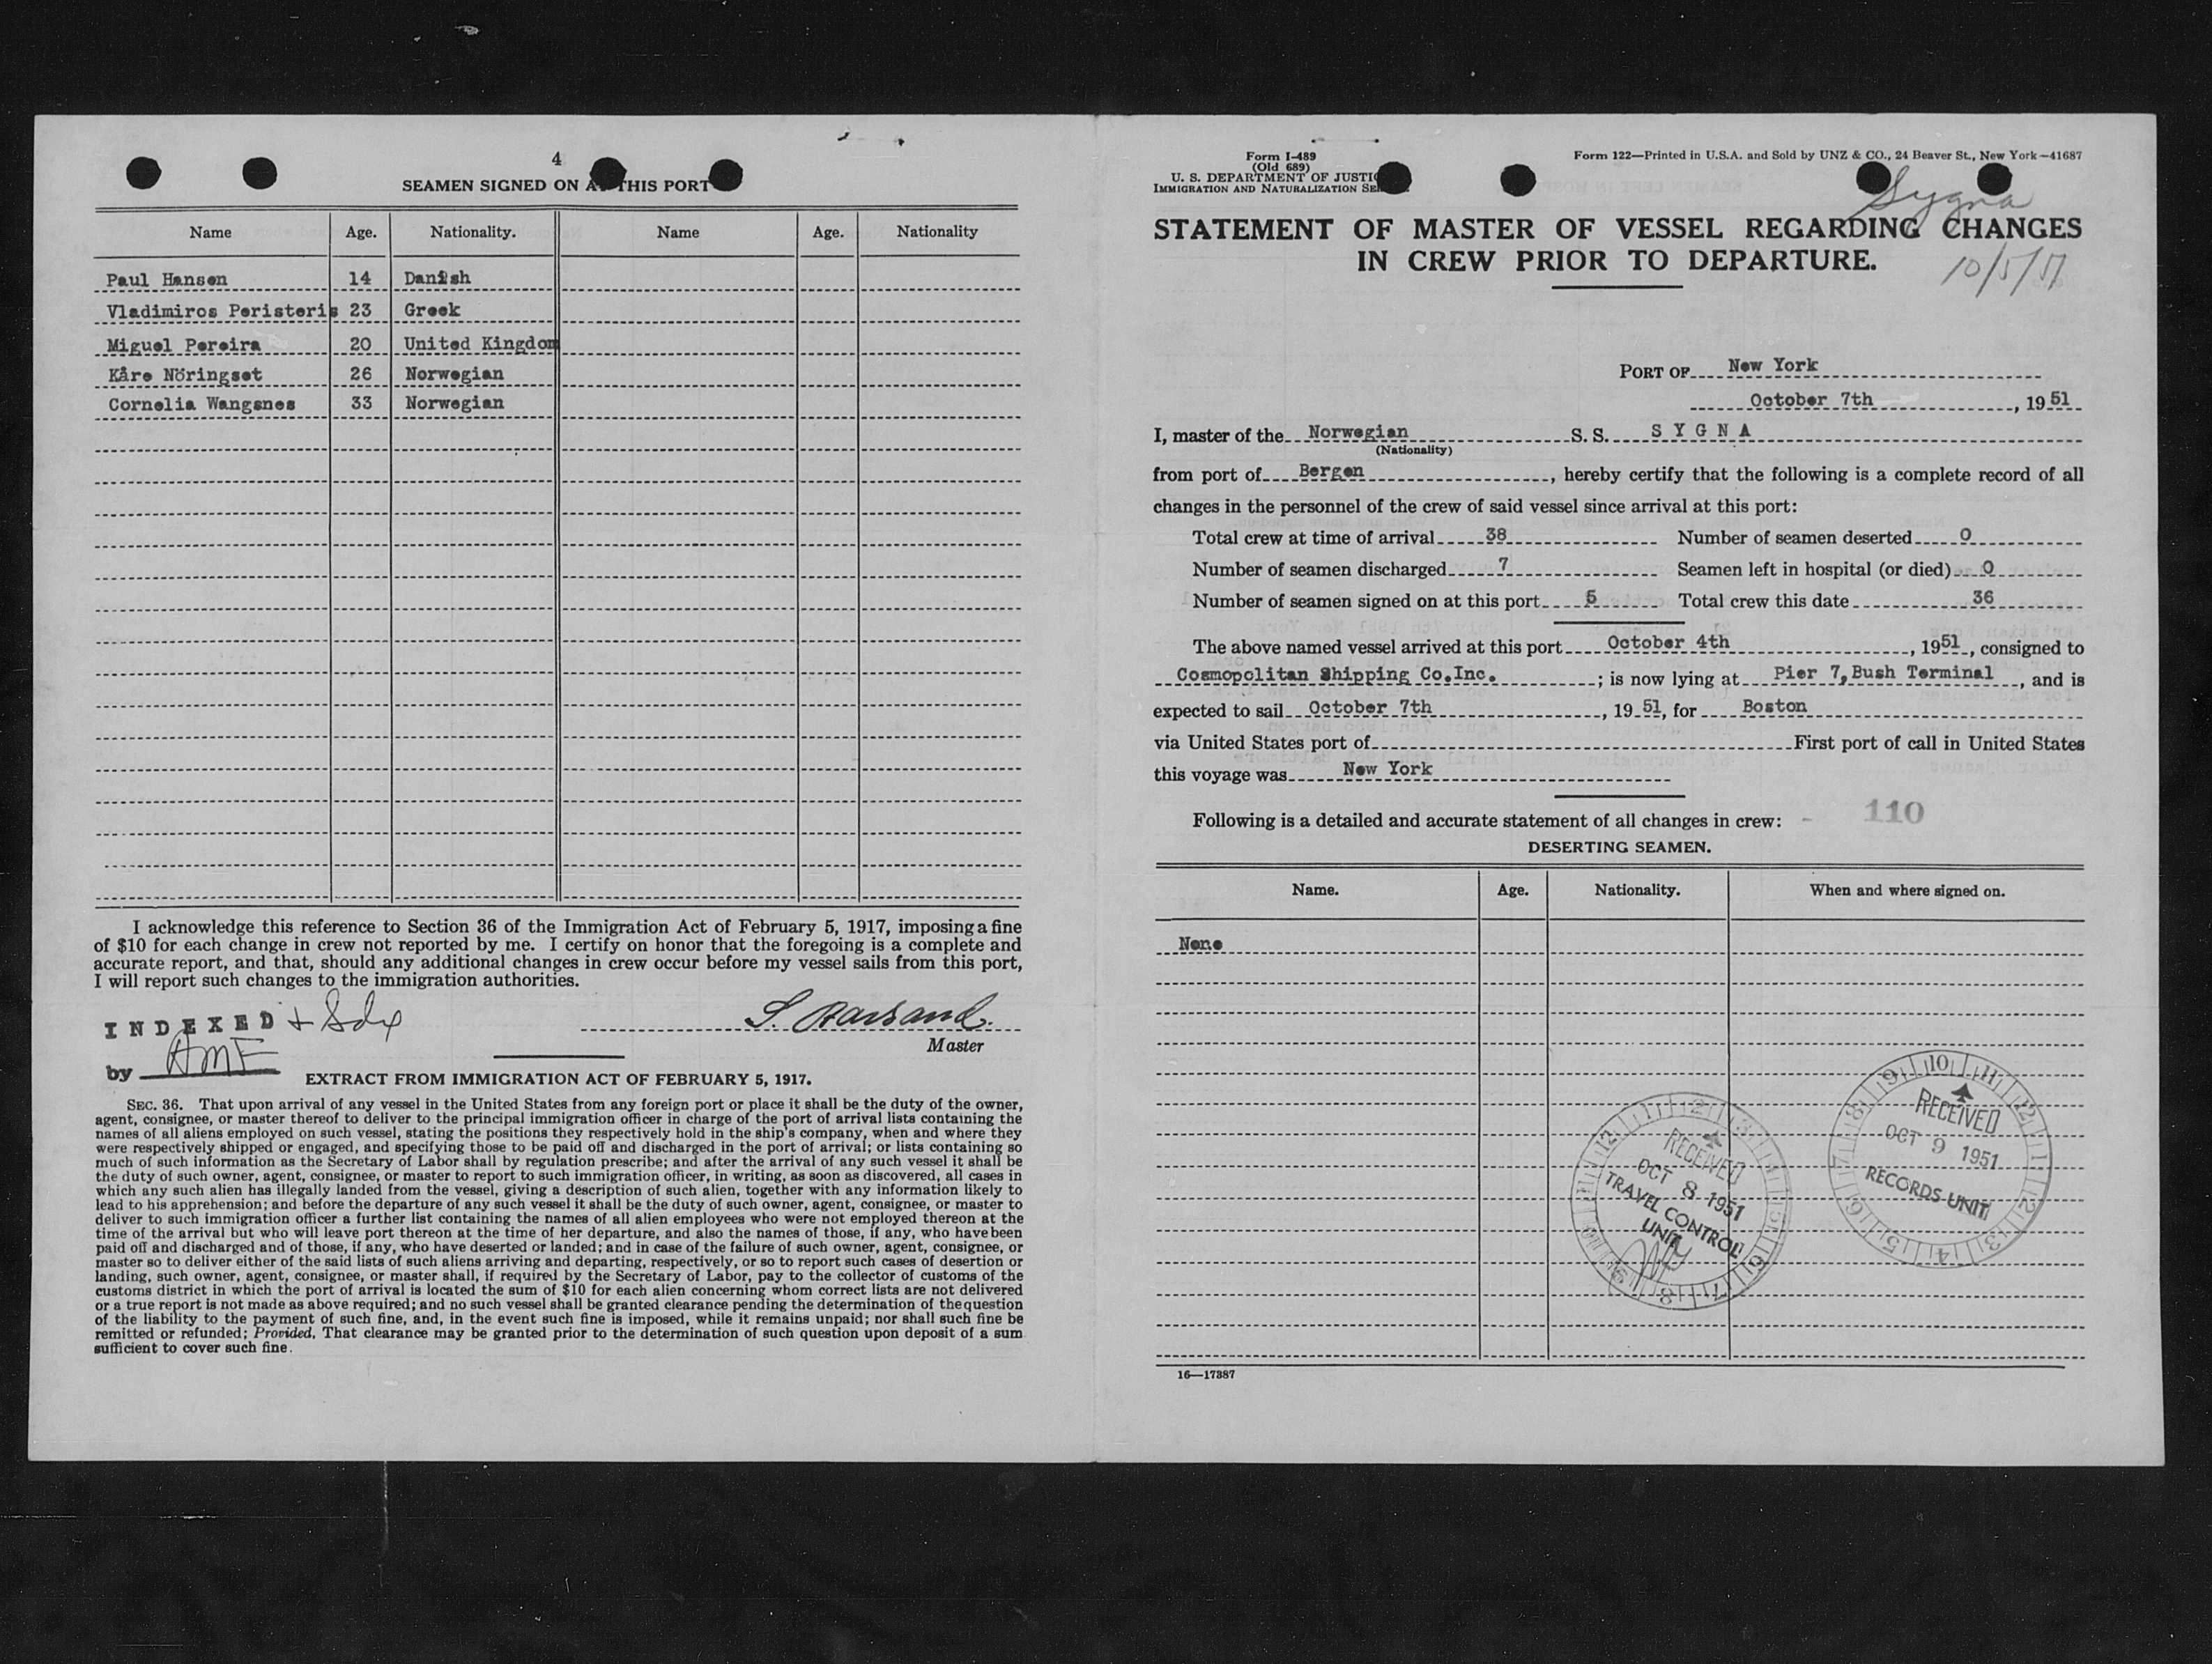 4
SEAMEN SIGNED ON AT THIS PORT
Name Age. Nationality. Name Age. Nationality
Paul Hansen 14 Danish
Vladimiros Peristeris 23 Greek
Miguel Pereira 20 United Kingdom
Kåre Nöringset 26 Norwegian
Cornelia Wangsnes 33 Norwegian
I acknowledge this reference to Section 36 of the Immigration Act of February 5, 1917, imposing a fine
of $10 for each change in crew not reported by me. I certify on honor that the foregoing is a complete and
accurate report, and that, should any additional changes in crew occur before my vessel sails from this port,
I will report such changes to the immigration authorities.
INDEXED
by AMF
Master
EXTRACT FROM IMMIGRATION ACT OF FEBRUARY 5, 1917.
SEC. 36. That upon arrival of any vessel in the United States from any foreign port or place it shall be the duty of the owner,
agent, consignee, or master thereof to deliver to the principal immigration officer in charge of the port of arrival lists containing the
names of all aliens employed on such vessel, stating the positions they respectively hold in the ship's company, when and where they
were respectively shipped or engaged, and specifying those to be paid off and discharged in the port of arrival; or lists containing so
much of such information as the Secretary of Labor shall by regulation prescribe; and after the arrival of any such vessel it shall be
the duty of such owner, agent, consignee, or master to report to such immigration officer, in writing, as soon as discovered, all cases in
which any such alien has illegally landed from the vessel, giving a description of such alien, together with any information likely to
lead to his apprehension; and before the departure of any such vessel it shall be the duty of such owner, agent, consignee, or master to
deliver to such immigration officer a further list containing the names of all alien employees who were not employed thereon at the
time of the arrival but who will leave port thereon at the time of her departure, and also the names of those, if any, who have been
paid off and discharged and of those, if any, who have deserted or landed; and in case of the failure of such owner, agent, consignee, or
master so to deliver either of the said lists of such aliens arriving and departing, respectively, or so to report such cases of desertion or
landing, such owner, agent, consignee, or master shall, if required by the Secretary of Labor, pay to the collector of customs of the
customs district in which the port of arrival is located the sum of $10 for each alien concerning whom correct lists are not delivered
or a true report is not made as above required; and no such vessel shall be granted clearance pending the determination of the question
of the liability to the payment of such fine, and, in the event such fine is imposed, while it remains unpaid; nor shall such fine be
remitted or refunded; Provided, That clearance may be granted prior to the determination of such question upon deposit of a sum
sufficient to cover such fine.
Form I-489
(Old 689)
U. S. DEPARTMENT OF JUSTICE
IMMIGRATION AND NATURALIZATION SE
Form 122—Printed in U.S.A. and Sold by UNZ & CO., 24 Beaver St., New York—41687
Sygna
STATEMENT OF MASTER OF VESSEL REGARDING CHANGES
IN CREW PRIOR TO DEPARTURE.
10/5/51
PORT OF New York
October 7th, 1951
I, master of the Norwegian S. S. S Y G N A
(Nationality)
from port of Bergen, hereby certify that the following is a complete record of all
changes in the personnel of the crew of said vessel since arrival at this port:
Total crew at time of arrival 38 Number of seamen deserted 0
Number of seamen discharged 7 Seamen left in hospital (or died) 0
Number of seamen signed on at this port 5 Total crew this date 36
The above named vessel arrived at this port October 4th, 1951, consigned to
Cosmopolitan Shipping Co.Inc.; is now lying at Pier 7, Bush Terminal, and is
expected to sail October 7th, 1951, for Boston
via United States port of First port of call in United States
this voyage was New York
Following is a detailed and accurate statement of all changes in crew: - 110
DESERTING SEAMEN.
Name. Age. Nationality. When and where signed on.
None
RECEIVED
OCT 8 1951
TRAVEL CONTROL
UNIT
RECEIVED
OCT 9 1951
RECORDS UNIT
16—17387